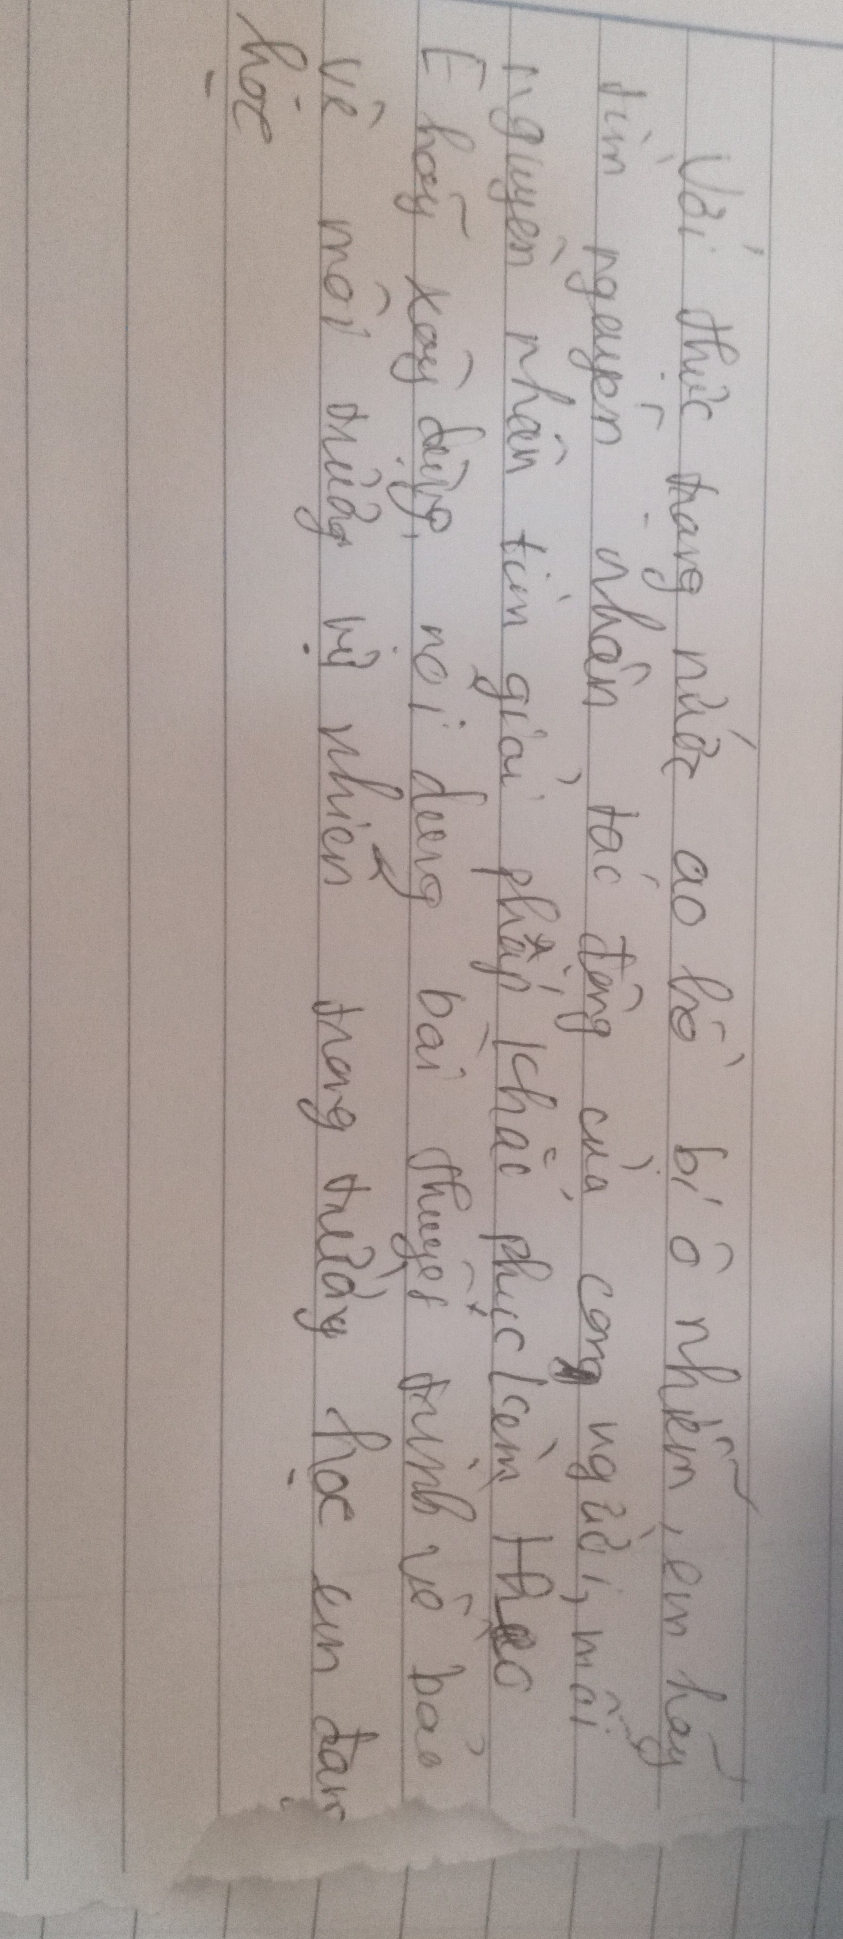 Với thực trạng nước ao hồ bị ô nhiễm, em hãy
tìm nguyên nhân tác động của cong người, mỗi
nguyên nhân tìm giải pháp khắc phục kèm theo
E hãy xây dựng nội dung bài thuyết trình về bảo
vệ môi trường tự nhiên trong trường học em đan
học